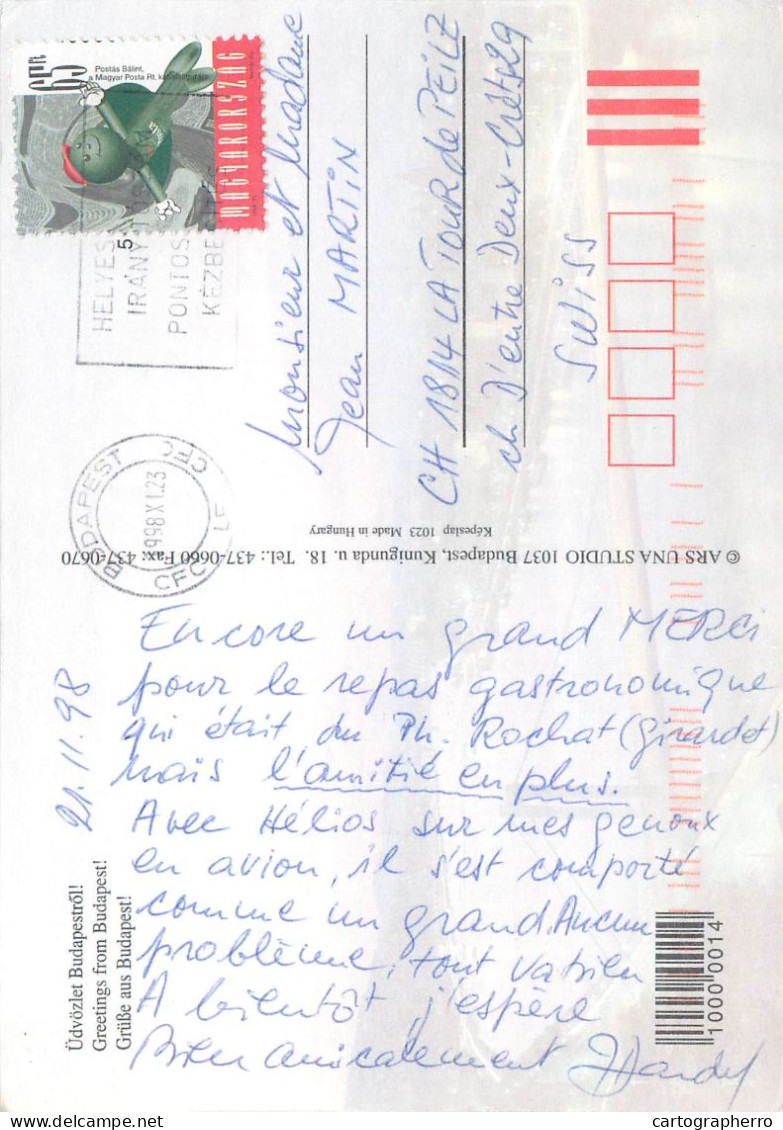 65Ft
Postás Bálint,
a Magyar Posta Rt. kabalafigurája
MAGYARORSZÁG
HELYES
IRÁNY
PONTOS
KÉZBE
BUDAPEST
1998 XI.23
CFC
Monsieur et Madame
Jean MARTIN
CH 1814 LA TOUR de PEILZ
ch D'entre Deux-Crêts 29
SWISS
Képeslap 1023 Made in Hungary
© ARS UNA STUDIO 1037 Budapest, Kunigunda u. 18. Tel.: 437-0660 Fax: 437-0670
21.11.98
Encore un grand MERCI
pour le repas gastronomique
qui était du Ph. Rochat (Girardet)
mais l'amitié en plus.
Avec Hélios sur mes genoux
en avion, il s'est comporté
comme un grand. Aucun
problème, tout va bien
A bientôt j'espère
Bien amicalement
Üdvözlet Budapestről!
Greetings from Budapest!
Grüße aus Budapest!
1000 0014
cartographerro